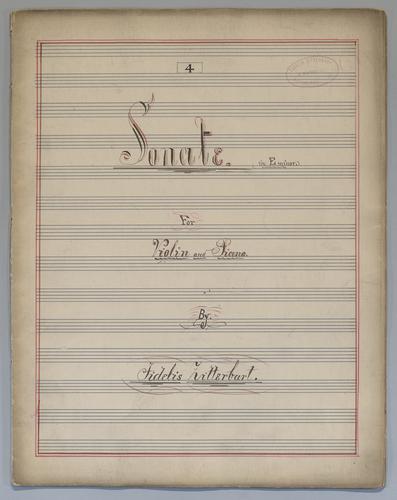 4
Sonate. (in E minor.)
For
Violin and Piano.
By.
Fidelis Zitterbart.